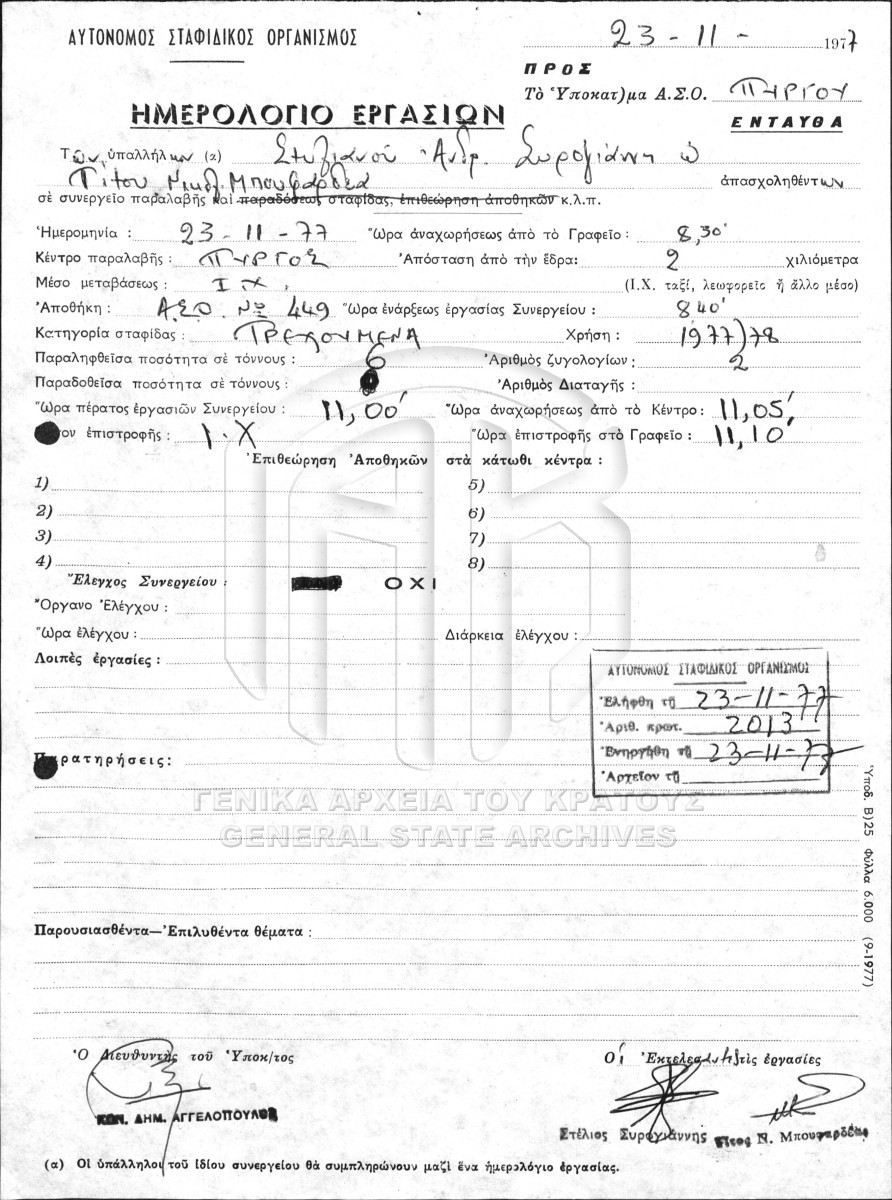 ΑΥΤΟΝΟΜΟΣ ΣΤΑΦΙΔΙΚΟΣ ΟΡΓΑΝΙΣΜΟΣ
23 - 11 - 1977
ΠΡΟΣ
Τὸ Ὑποκατ)μα Α.Σ.Ο. ΠΥΡΓΟΥ
ΕΝΤΑΥΘΑ
ΗΜΕΡΟΛΟΓΙΟ ΕΡΓΑΣΙΩΝ
Τῶν ὑπαλλήλων (α) Στυλιανοῦ Ἀνδρ. Συρογιάννη
Τίτου Νικολ. Μπουφαρδέα ἀπασχοληθέντων
σὲ συνεργεῖο παραλαβῆς καὶ παραδόσεως σταφίδας, ἐπιθεώρηση ἀποθηκῶν κ.λ.π.
Ἡμερομηνία : 23-11-77 Ὥρα ἀναχωρήσεως ἀπὸ τὸ Γραφεῖο : 8,30'
Κέντρο παραλαβῆς : ΠΥΡΓΟΣ Ἀπόσταση ἀπὸ τὴν ἕδρα: 2 χιλιόμετρα
Μέσο μεταβάσεως : Ι.Χ. (Ι.Χ. ταξί, λεωφορεῖο ἤ ἄλλο μέσο)
Ἀποθήκη : ΑΣΟ Νο 449 Ὥρα ἐνάρξεως ἐργασίας Συνεργείου : 840'
Κατηγορία σταφίδας : ΤΡΕΧΟΥΜΕΝΑ Χρήση : 1977)78
Παραληφθεῖσα ποσότητα σὲ τόννους : 6 Ἀριθμὸς ζυγολογίων : 2
Παραδοθεῖσα ποσότητα σὲ τόννους : Ἀριθμὸς Διαταγῆς :
Ὥρα πέρατος ἐργασιῶν Συνεργείου : 11,00' Ὥρα ἀναχωρήσεως ἀπὸ τὸ Κέντρο : 11,05'
ον ἐπιστροφῆς : Ι.Χ Ὥρα ἐπιστροφῆς στὸ Γραφεῖο : 11,10'
Ἐπιθεώρηση Ἀποθηκῶν στὰ κάτωθι κέντρα :
1) 5)
2) 6)
3) 7)
4) 8)
Ἔλεγχος Συνεργείου : ΟΧΙ
Ὄργανο Ἐλέγχου :
Ὥρα ἐλέγχου : Διάρκεια ἐλέγχου :
Λοιπὲς ἐργασίες :
ΑΥΤΟΝΟΜΟΣ ΣΤΑΦΙΔΙΚΟΣ ΟΡΓΑΝΙΣΜΟΣ
Ἐλήφθη τῇ 23-11-77
Ἀριθ. πρωτ. 2013
Ἐνηργήθη τῇ 23-11-77
Ἀρχεῖον τῇ
Παρατηρήσεις:
ΓΕΝΙΚΑ ΑΡΧΕΙΑ ΤΟΥ ΚΡΑΤΟΥΣ
GENERAL STATE ARCHIVES
Ὑποδ. Β)25 Φύλλα 6.000 (9-1977)
Παρουσιασθέντα—Ἐπιλυθέντα θέματα :
Ὁ Διευθυντὴς τοῦ Ὑποκ/τος
Οἱ Ἐκτελεσ τὶς ἐργασίες
ΚΩΝ. ΔΗΜ. ΑΓΓΕΛΟΠΟΥΛΟΣ
Στέλιος Συρογιάννης Τίτος Ν. Μπουφαρδέας
(α) Οἱ ὑπάλληλοι τοῦ ἰδίου συνεργείου θὰ συμπληρώνουν μαζὶ ἕνα ἡμερολόγιο ἐργασίας.